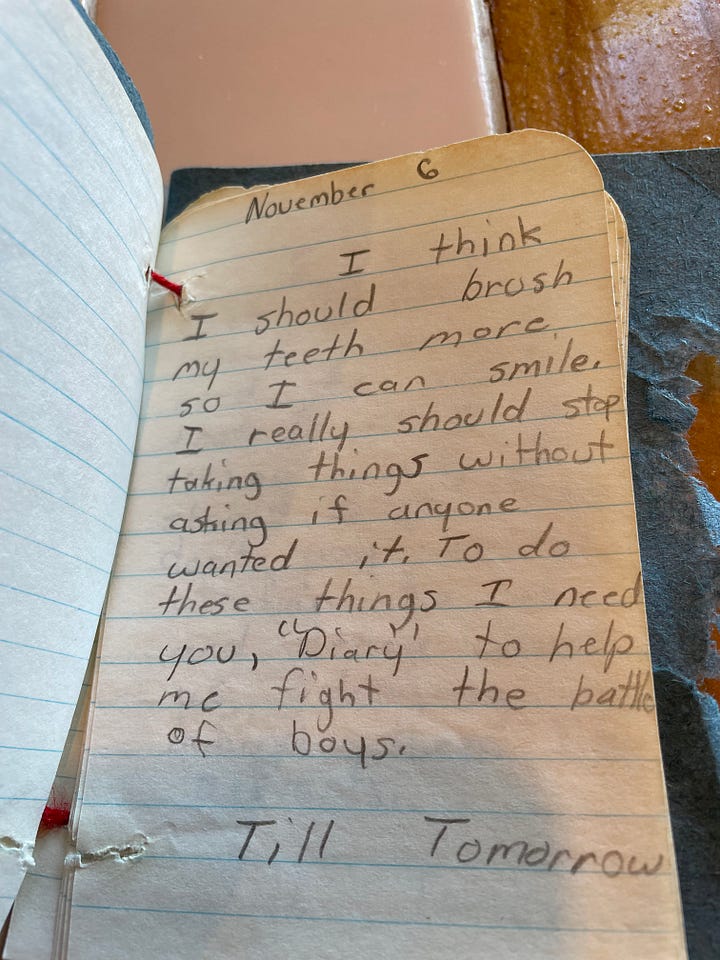 November 6
I think
I should brush
my teeth more
so I can smile.
I really should stop
taking things without
asking if anyone
wanted it. To do
these things I need
you, "Diary" to help
me fight the battle
of boys.
Till Tomorrow